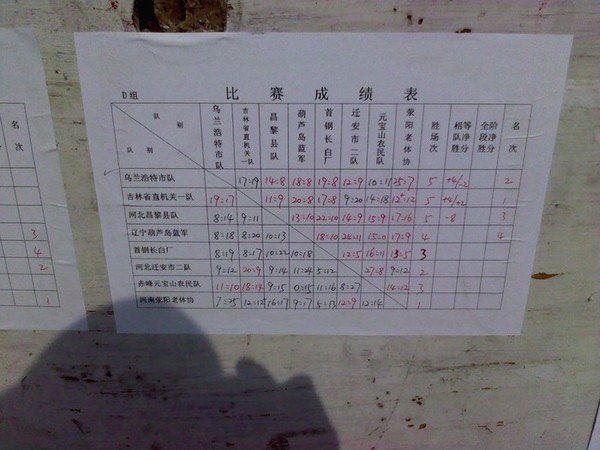 名次
3
4
2
1
比赛成绩表
D组
队别
队别
乌兰浩特市队
吉林省直机关一队
昌黎县队
葫芦岛蓝军
首钢长白厂
迁安市二队
元宝山农民队
荥阳老体协
胜场次
相等队净胜分
全阶段净胜分
名次
乌兰浩特市队 17:19 14:8 18:8 19:8 12:9 10:11 25:7 5 +4/-2 2
吉林省直机关一队 19:17 11:9 20:8 17:8 9:20 14:18 12:12 5 +4/+2 1
河北昌黎县队 8:14 9:11 13:10 22:10 14:9 15:9 17:16 5 -8 3
辽宁葫芦岛蓝军 8:18 8:20 10:13 18:10 24:11 15:0 17:9 4 4
首钢长白厂 8:19 8:17 10:22 10:18 12:5 16:11 13:5 3
河北迁安市二队 9:12 20:9 9:14 11:24 5:12 27:8 9:12 2
赤峰元宝山农民队 11:10 18:14 9:15 0:15 11:16 8:27 14:12 3
河南荥阳老体协 7:25 12:12 16:17 9:17 5:13 12:9 12:14 1